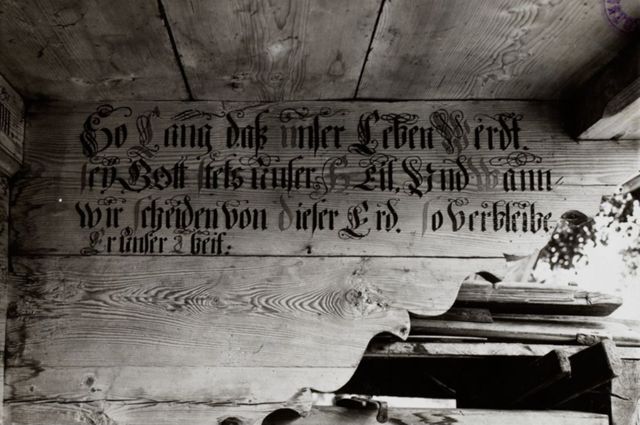 So Lang daß unser Leben Werdt.
sey Gott stets unser Heil, Und Wann
wir scheiden von dieser Erd. so verbleibe
Er unser Theil: